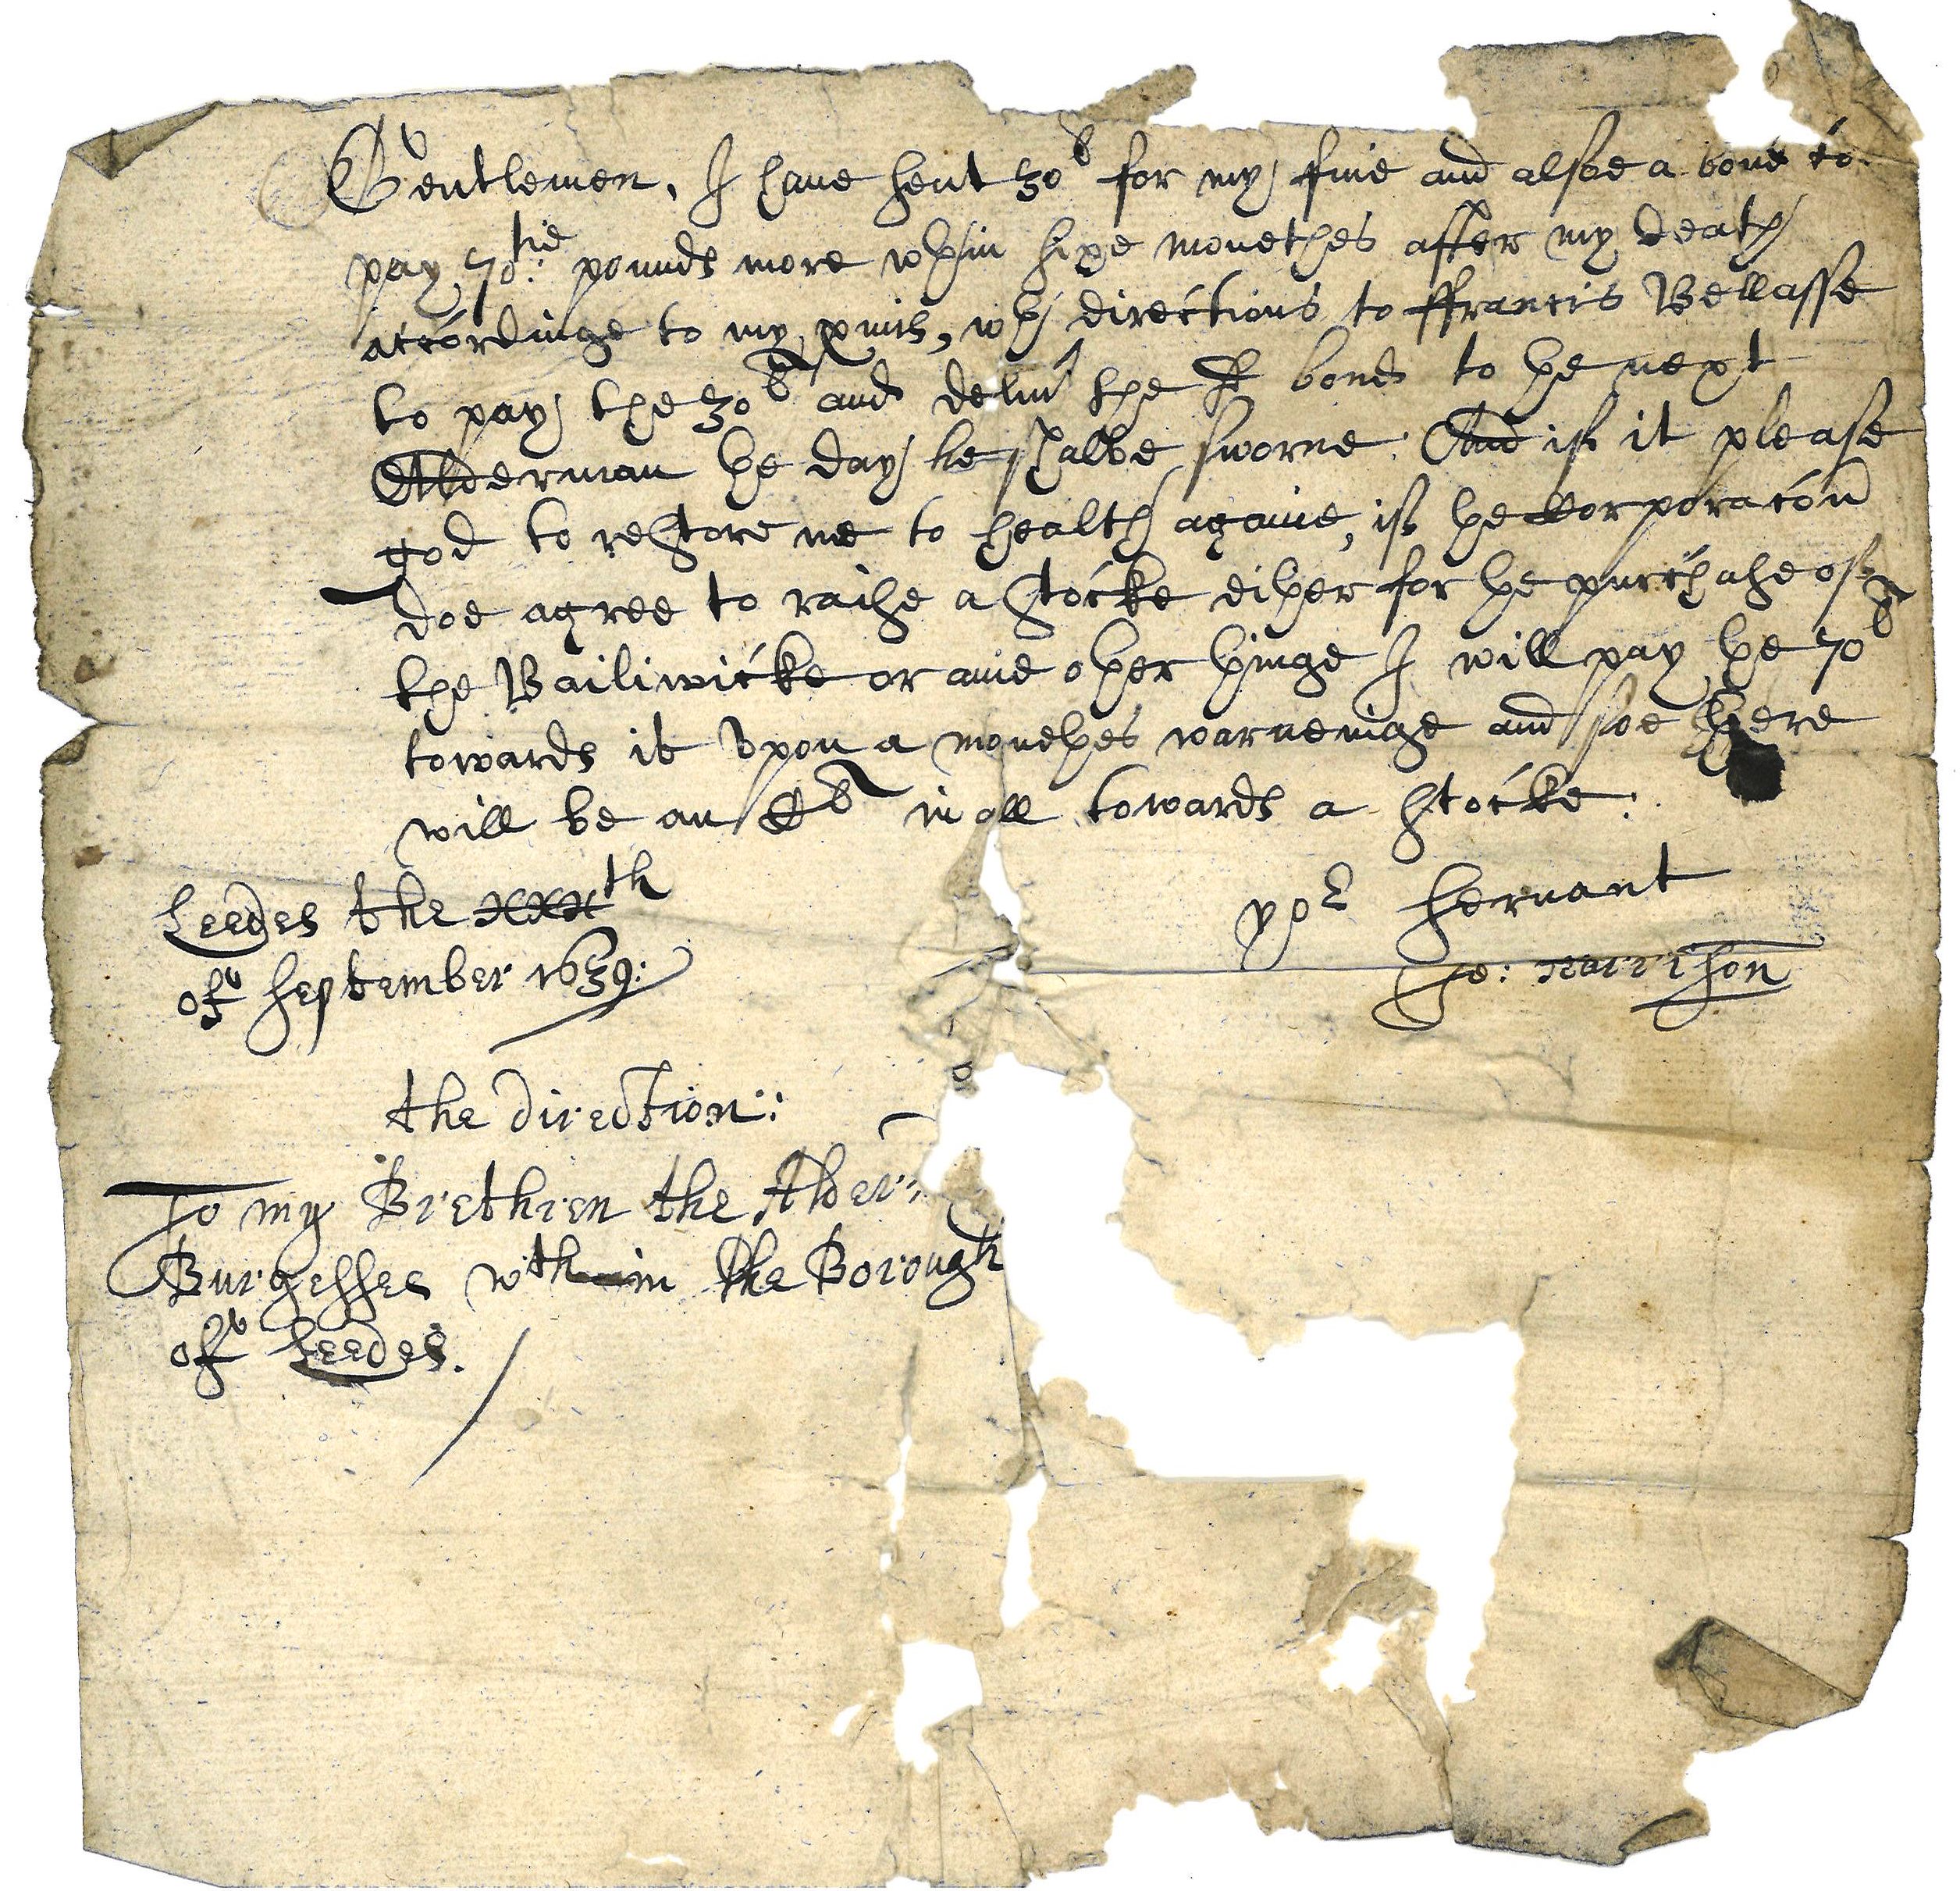 Gentlemen, I haue sent 30l for my fine and alsoe a bond to
pay 70tie pounds more wthin sixe monethes after my death
accordinge to my pmis, wth directions to ffrancis Bellasse
to pay the 30l and deliur the sd bond to þe next
Alderman þe day he shalbe sworne. And if it please
god to restore me to health againe, if þe Corporacōn
doe agree to raise a stocke eiþer for þe purchase of
the Bailiwicke or anie oþer þinge I will pay þe 70l
towards it vpon a moneþes warneinge and soe there
will be an Cl in all towards a stocke:
Leedes the xxxth
of September 1639:
yor servant
Jo: Harrison
the direction:
To my Brethren the Alder:
Burgesses wthin the Borough
of Leedes.